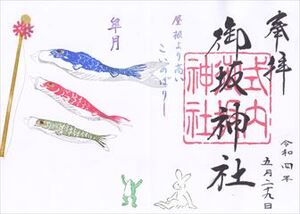 奉拝
式内
御坂神社
神社
令和四年
五月二十九日
皐月
屋根より高い
こいのぼり